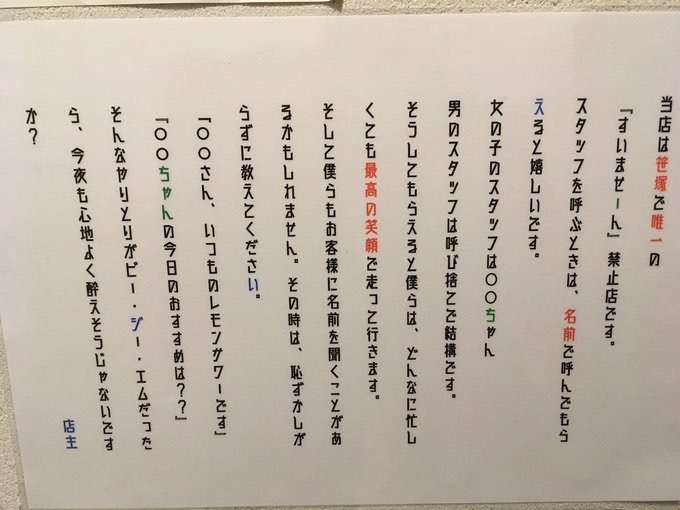 当店は笹塚で唯一の
『すいませーん』禁止店です。
スタッフを呼ぶときは、名前で呼んでもら
えると嬉しいです。
女の子のスタッフは〇〇ちゃん
男のスタッフは呼び捨てで結構です。
そうしてもらえると僕らは、どんなに忙し
くても最高の笑顔で走って行きます。
そして僕らもお客様に名前を聞くことがあ
るかもしれません。その時は、恥ずかしが
らずに教えてください。
「〇〇さん、いつものレモンサワーです」
「〇〇ちゃんの今日のおすすめは??」
そんなやりとりがビー・ジー・エムだった
ら、今夜も心地よく酔えそうじゃないです
か?
店主